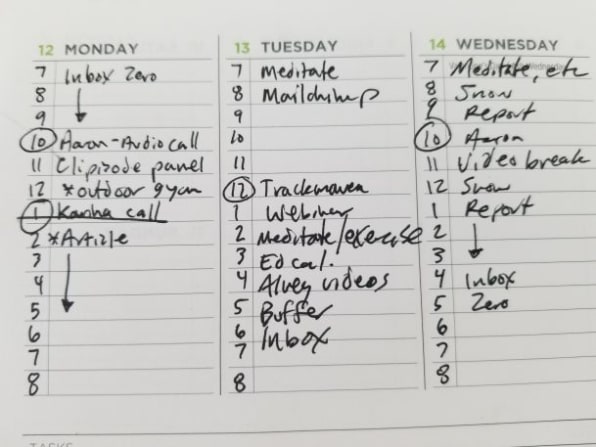 12 MONDAY
7 Inbox Zero
8
9
10 Aaron-Audio call
11 Clipisode panel
12 *outdoor gym
1 Kanha call
2 *Article
3
4
5
6
7
8
13 TUESDAY
7 Meditate
8 Mailchimp
9
10
11
12 Trackmaven
1 Webinar
2 Meditate/exercise
3 Ed cal.
4 Alvey videos
5 Buffer
6 Inbox
7
8
14 WEDNESDAY
7 Meditate, etc
8 Snow
9 Report
10 Aaron
11 Video break
12 Snow
1 Report
2
3
4 Inbox
5 Zero
6
7
8
TASKS